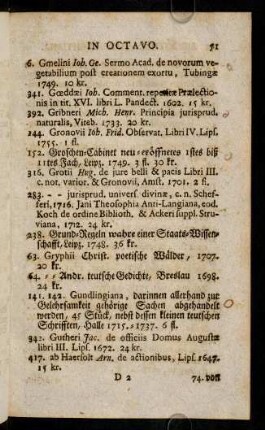 IN OCTAVO. 51
6. Gmelini Ioh. Ge. Sermo Acad. de novorum ve-
getabilium post creationem exortu, Tubingæ
1749. 10 kr.
341. Gœddæi Ioh. Comment. repetitæ Prælectio-
nis in tit. XVI. libri L. Pandect. 1602. 15 kr.
392. Gribneri Mich. Henr. Principia jurisprud.
naturalis, Viteb. 1733. 20 kr.
144. Gronovii Ioh. Frid. Observat. Libri IV. Lips.
1755. 1 fl.
152. Groschen-Cabinet neu-eröffnetes 1stes biß
11tes Fach, Leipz. 1749. 3 fl. 30 kr.
316. Grotii Hug. de jure belli & pacis Libri III.
c. not. varior. & Gronovii, Amst. 1701. 2 fl.
283. - - jurisprud. univers. divinæ, c. n. Schef-
feri, 1716. Jani Theosophia Anti-Langiana, eod.
Koch de ordine Biblioth. & Ackeri suppl. Stru-
viana, 1712. 24 kr.
238. Grund-Regeln wahre einer Staats-Wissen-
schafft, Leipz. 1748. 36 kr.
63. Gryphii Christ. poetische Wälder, 1707.
20 kr.
64. - - Andr. teutsche Gedichte, Breslau 1698.
24 kr.
141. 142. Gundlingiana, darinnen allerhand zur
Gelehrsamkeit gehörige Sachen abgehandelt
werden, 45 Stück, nebst dessen kleinen teutschen
Schrifften, Halle 1715.-1737. 6 fl.
342. Gutheri Jac. de officiis Domus Augustæ
libri III. Lips. 1672. 24 kr.
417. ab Haersolt Arn. de actionibus, Lips. 1647.
15 kr.
D 2 74. von